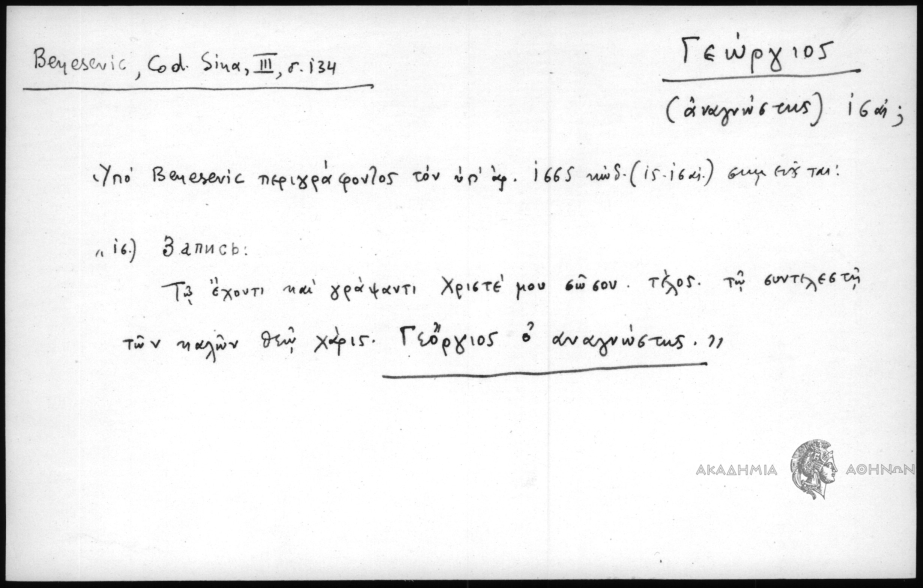 Benesevic, Cod. Sina, III, σ. 134
Γεώργιος
(ἀναγνώστης) 16 αἰ;
Ὑπό Benesevic περιγράφοντος τόν ὑπ' ἀρ. 1665 κώδ. (15-16 αἰ.) σημειοῦται:
„16.) Запись:
Τῷ ἔχοντι καὶ γράψαντι Χριστέ μου σῶσον. τέλος. τῷ συντελεστῇ
τῶν καλῶν θεῷ χάρις. Γεὅργιος ὁ αναγνώστης. ”
ΑΚΑΔΗΜΙΑ ΑΘΗΝΩΝ